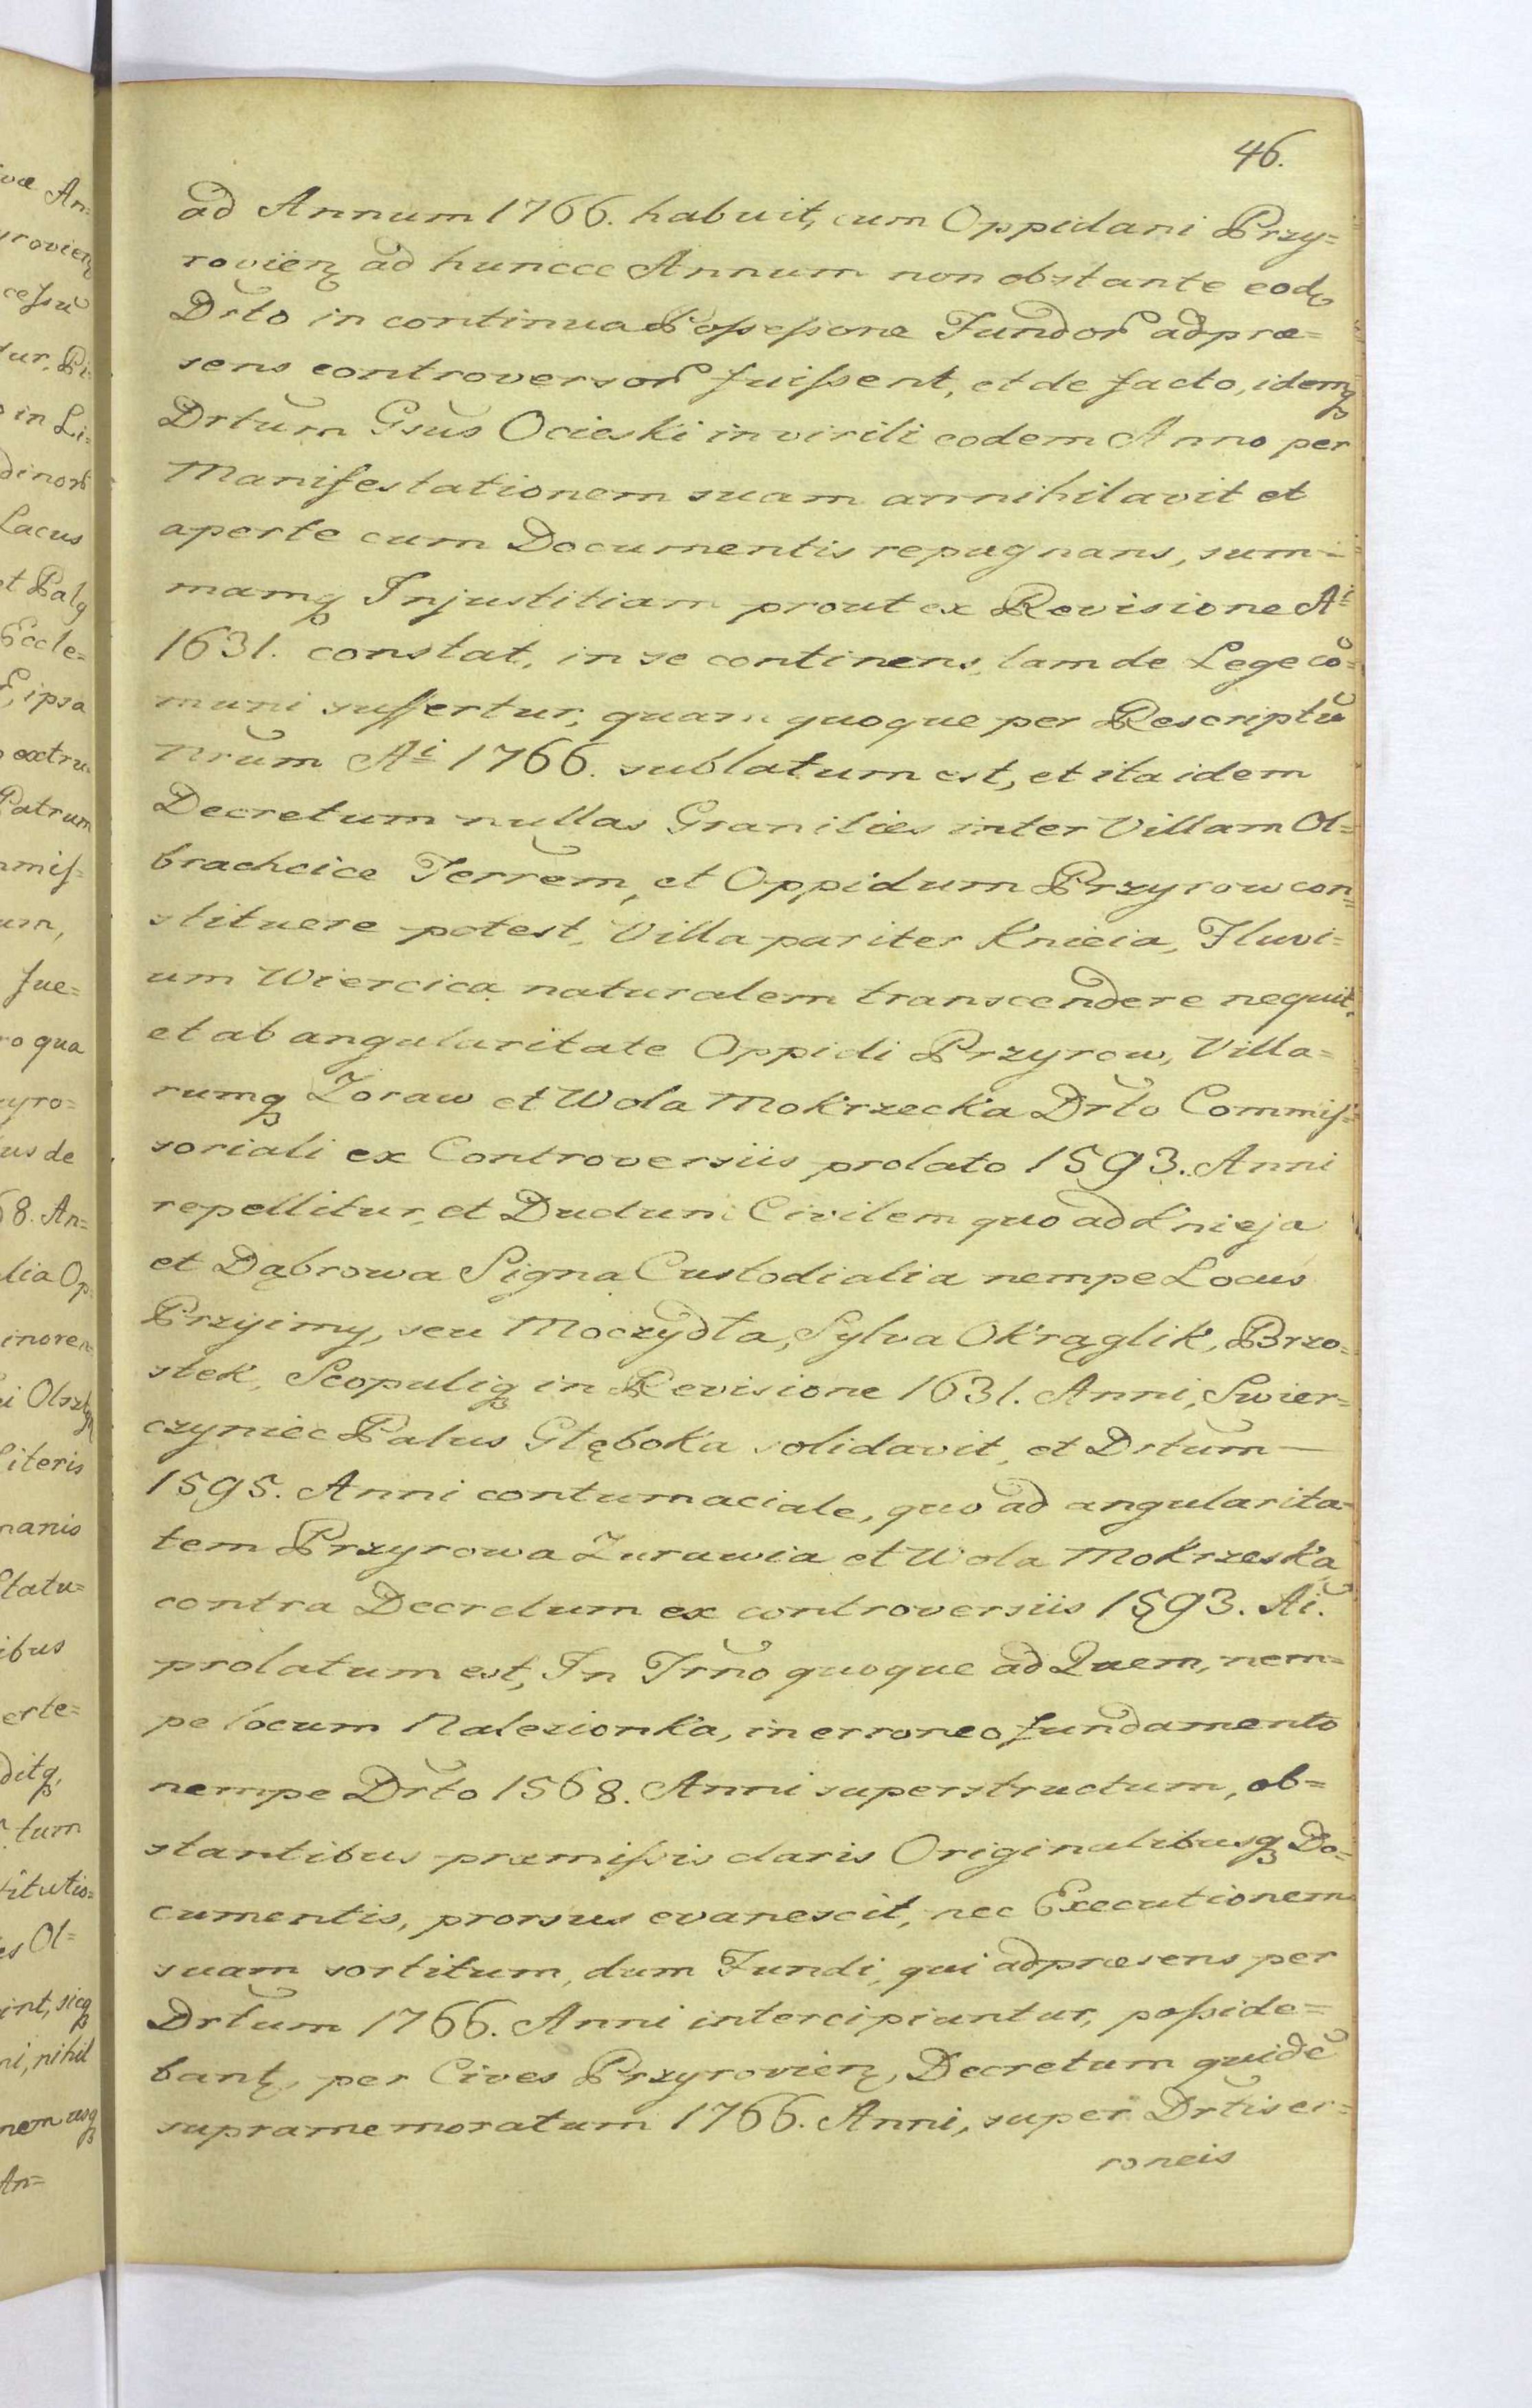 46.
ad Annum 1766. habuit, cum Oppidani Przy=
rovien ad huncce Annum non obstante eod
Drto in continua Possessione Fundor adprae=
sens controversor fuissent, et de facto, idemq
Drtum Gsus Ocieski in virili eodem Anno per
Manifestationem suam annihilavit et
aperte cum Documentis repugnans, sum=
mamq Injustitiam prout ex Revisione Ai
1631. constat, in se continens, tam de Lege co=
muni suffertur, quam quoque per Rescriptu
Nrum Ai 1766. sublatum est, et ita idem
Decretum nullas Granities inter Villam Ol=
brachcice Terrem, et Oppidum Przyrow con=
stituere potest, Villa pariter Knieia, Fluvi=
um Wiercica naturalem transcendere nequit,
et ab angularitate Oppidi Przyrow, Villa=
rumq Zoraw et Wola Mokrzecka Drto Commis=
soriali ex Controversiis prolato 1593. Anni
repellitur, et Ductum Civilem quo ad Knieja
et Dąbrowa Signa Custodialia nempe Locus
Przyimy, seu Moczydła, Sylva Okrąglik, Brzo=
stek, Scopuliq in Revisione 1631. Anni, Swier=
czyniec Palus Głęboka solidavit, et Drtum
1595. Anni contumaciale, quo ad angularita=
tem Przyrowa Zurawia et Wola Mokrzeska
contra Decretum ex controversiis 1593. Ai.
prolatum est, In Trno quoque ad Quem, nem=
pe locum Nalezionka, in erroneo fundamento
nempe Drto 1568. Anni superstructum, ob=
stantibus praemissis claris Originalibusq Do=
cumentis, prorsus evanescit, nec Executionem
suam sortitum, dum Fundi, qui adpraesens per
Drtum 1766. Anni intercipiuntur, posside=
bant, per Cives Przyrovien, Decretum quide
supramemoratum 1766. Anni, super Drtis er=
roneis